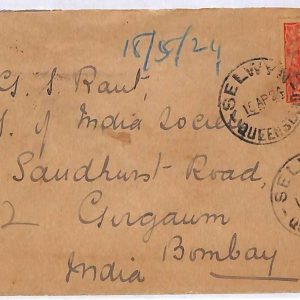 18/5/24
G. S. Raut,
S. of India Societ
Sandhurst Road,
2 Girgaum
Bombay
India
SELWYN
15 AP 24
QUEENSL
SEL